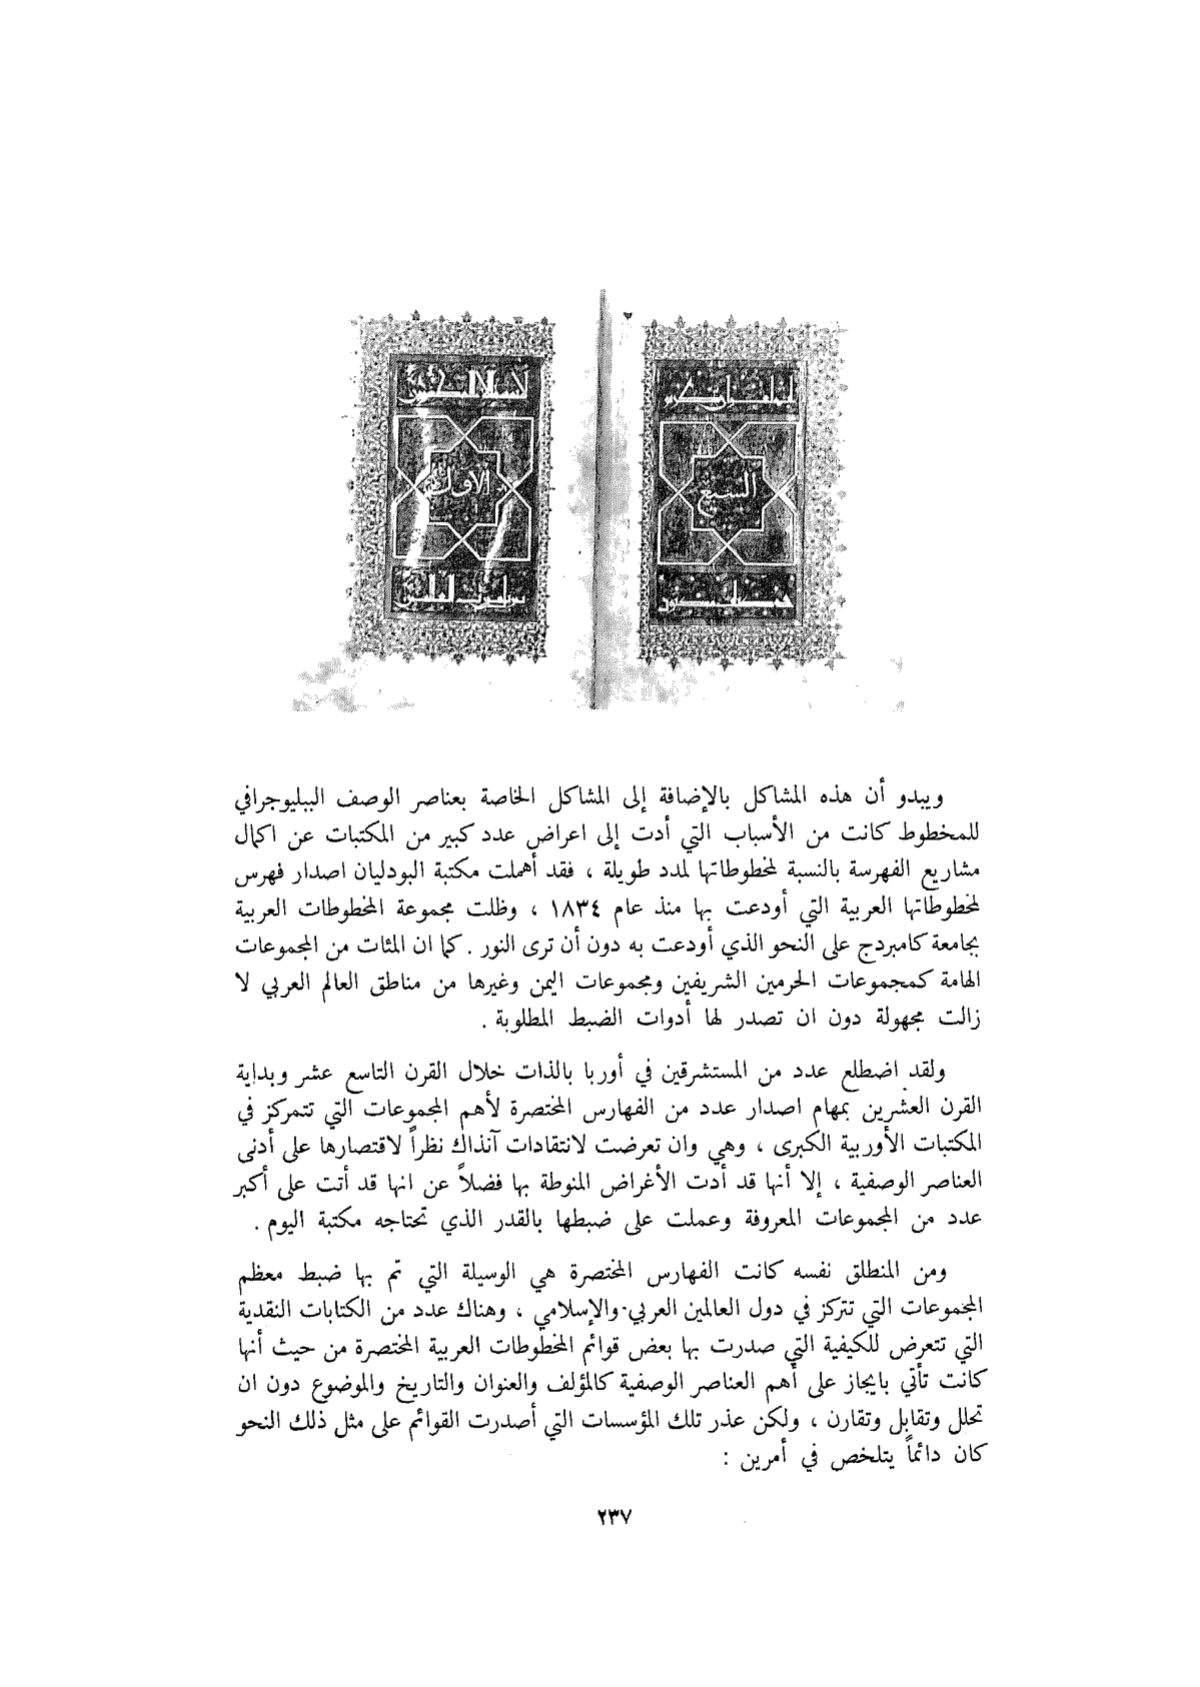 السبع
الاول
ويبدو أن هذه المشاكل بالإضافة إلى المشاكل الخاصة بعناصر الوصف الببليوجرافي
للمخطوط كانت من الأسباب التي أدت إلى اعراض عدد كبير من المكتبات عن اكمال
مشاريع الفهرسة بالنسبة لمخطوطاتها لمدد طويلة ، فقد أهملت مكتبة البودليان اصدار فهرس
لمخطوطاتها العربية التي أودعت بها منذ عام ١٨٣٤ ، وظلت مجموعة المخطوطات العربية
بجامعة كامبردج على النحو الذي أودعت به دون أن ترى النور . كما ان المئات من المجموعات
الهامة كمجموعات الحرمين الشريفين ومجموعات اليمن وغيرها من مناطق العالم العربي لا
زالت مجهولة دون ان تصدر لها أدوات الضبط المطلوبة .
ولقد اضطلع عدد من المستشرقين في أوربا بالذات خلال القرن التاسع عشر وبداية
القرن العشرين بمهام اصدار عدد من الفهارس المختصرة لأهم المجموعات التي تتمركز في
المكتبات الأوربية الكبرى ، وهي وان تعرضت لانتقادات آنذاك نظراً لاقتصارها على أدنى
العناصر الوصفية ، إلا أنها قد أدت الأغراض المنوطة بها فضلاً عن انها قد أتت على أكبر
عدد من المجموعات المعروفة وعملت على ضبطها بالقدر الذي تحتاجه مكتبة اليوم .
ومن المنطلق نفسه كانت الفهارس المختصرة هي الوسيلة التي تم بها ضبط معظم
المجموعات التي تتركز في دول العالمين العربي والإسلامي ، وهناك عدد من الكتابات النقدية
التي تتعرض للكيفية التي صدرت بها بعض قوائم المخطوطات العربية المختصرة من حيث أنها
كانت تأتي بايجاز على أهم العناصر الوصفية كالمؤلف والعنوان والتاريخ والموضوع دون ان
تحلل وتقابل وتقارن ، ولكن عذر تلك المؤسسات التي أصدرت القوائم على مثل ذلك النحو
كان دائماً يتلخص في أمرين :
٢٣٧